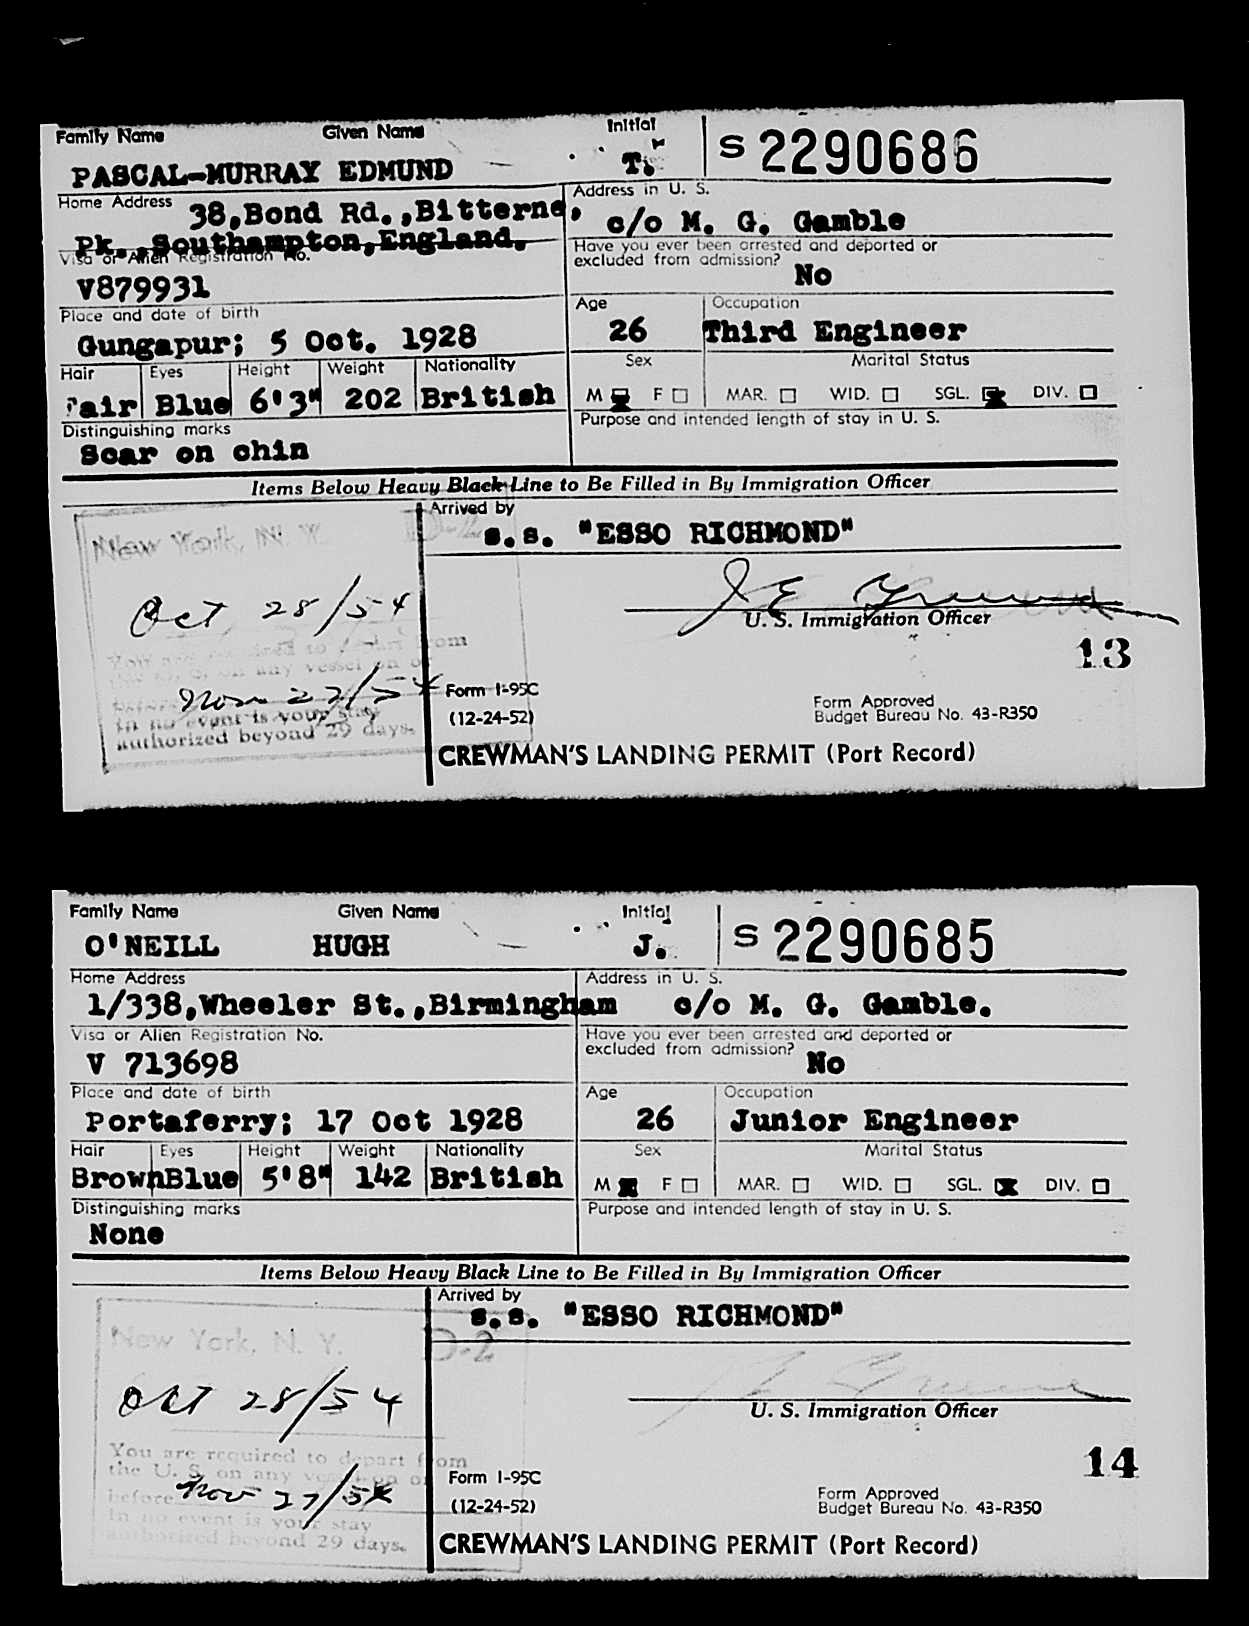 Family Name Given Name Initial
PASCAL-MURRAY EDMUND T. S 2290686
Home Address 38,Bond Rd.,Bitterne,
Pk.,Southampton,England.
Address in U. S.
c/o M. G. Gamble
Visa or Alien Registration No.
V879931
Have you ever been arrested and deported or
excluded from admission?
No
Place and date of birth
Gungapur; 5 Oct. 1928
Age
26
Occupation
Third Engineer
Hair Eyes Height Weight Nationality
Fair Blue 6'3" 202 British
Sex Marital Status
M F MAR. WID. SGL. DIV.
Distinguishing marks
Scar on chin
Purpose and intended length of stay in U. S.
Items Below Heavy Black Line to Be Filled in By Immigration Officer
New York, N. Y. D-2
Oct 28/54
You are required to depart from
the U. S. on any vessel on or
before Nov 27/54
In no event is your stay
authorized beyond 29 days.
Arrived by
s.s. "ESSO RICHMOND"
U. S. Immigration Officer
13
Form I-95C
(12-24-52)
Form Approved
Budget Bureau No. 43-R350
CREWMAN'S LANDING PERMIT (Port Record)
Family Name Given Name Initial
O'NEILL HUGH J. S 2290685
Home Address
1/338,Wheeler St.,Birmingham
Address in U. S.
c/o M. G. Gamble.
Visa or Alien Registration No.
V 713698
Have you ever been arrested and deported or
excluded from admission?
No
Place and date of birth
Portaferry; 17 Oct 1928
Age
26
Occupation
Junior Engineer
Hair Eyes Height Weight Nationality
Brown Blue 5'8" 142 British
Sex Marital Status
M F MAR. WID. SGL. DIV.
Distinguishing marks
None
Purpose and intended length of stay in U. S.
Items Below Heavy Black Line to Be Filled in By Immigration Officer
New York, N. Y. D-2
Oct 28/54
You are required to depart from
the U. S. on any vessel on or
before Nov 27/54
In no event is your stay
authorized beyond 29 days.
Arrived by
s.s. "ESSO RICHMOND"
U. S. Immigration Officer
14
Form I-95C
(12-24-52)
Form Approved
Budget Bureau No. 43-R350
CREWMAN'S LANDING PERMIT (Port Record)